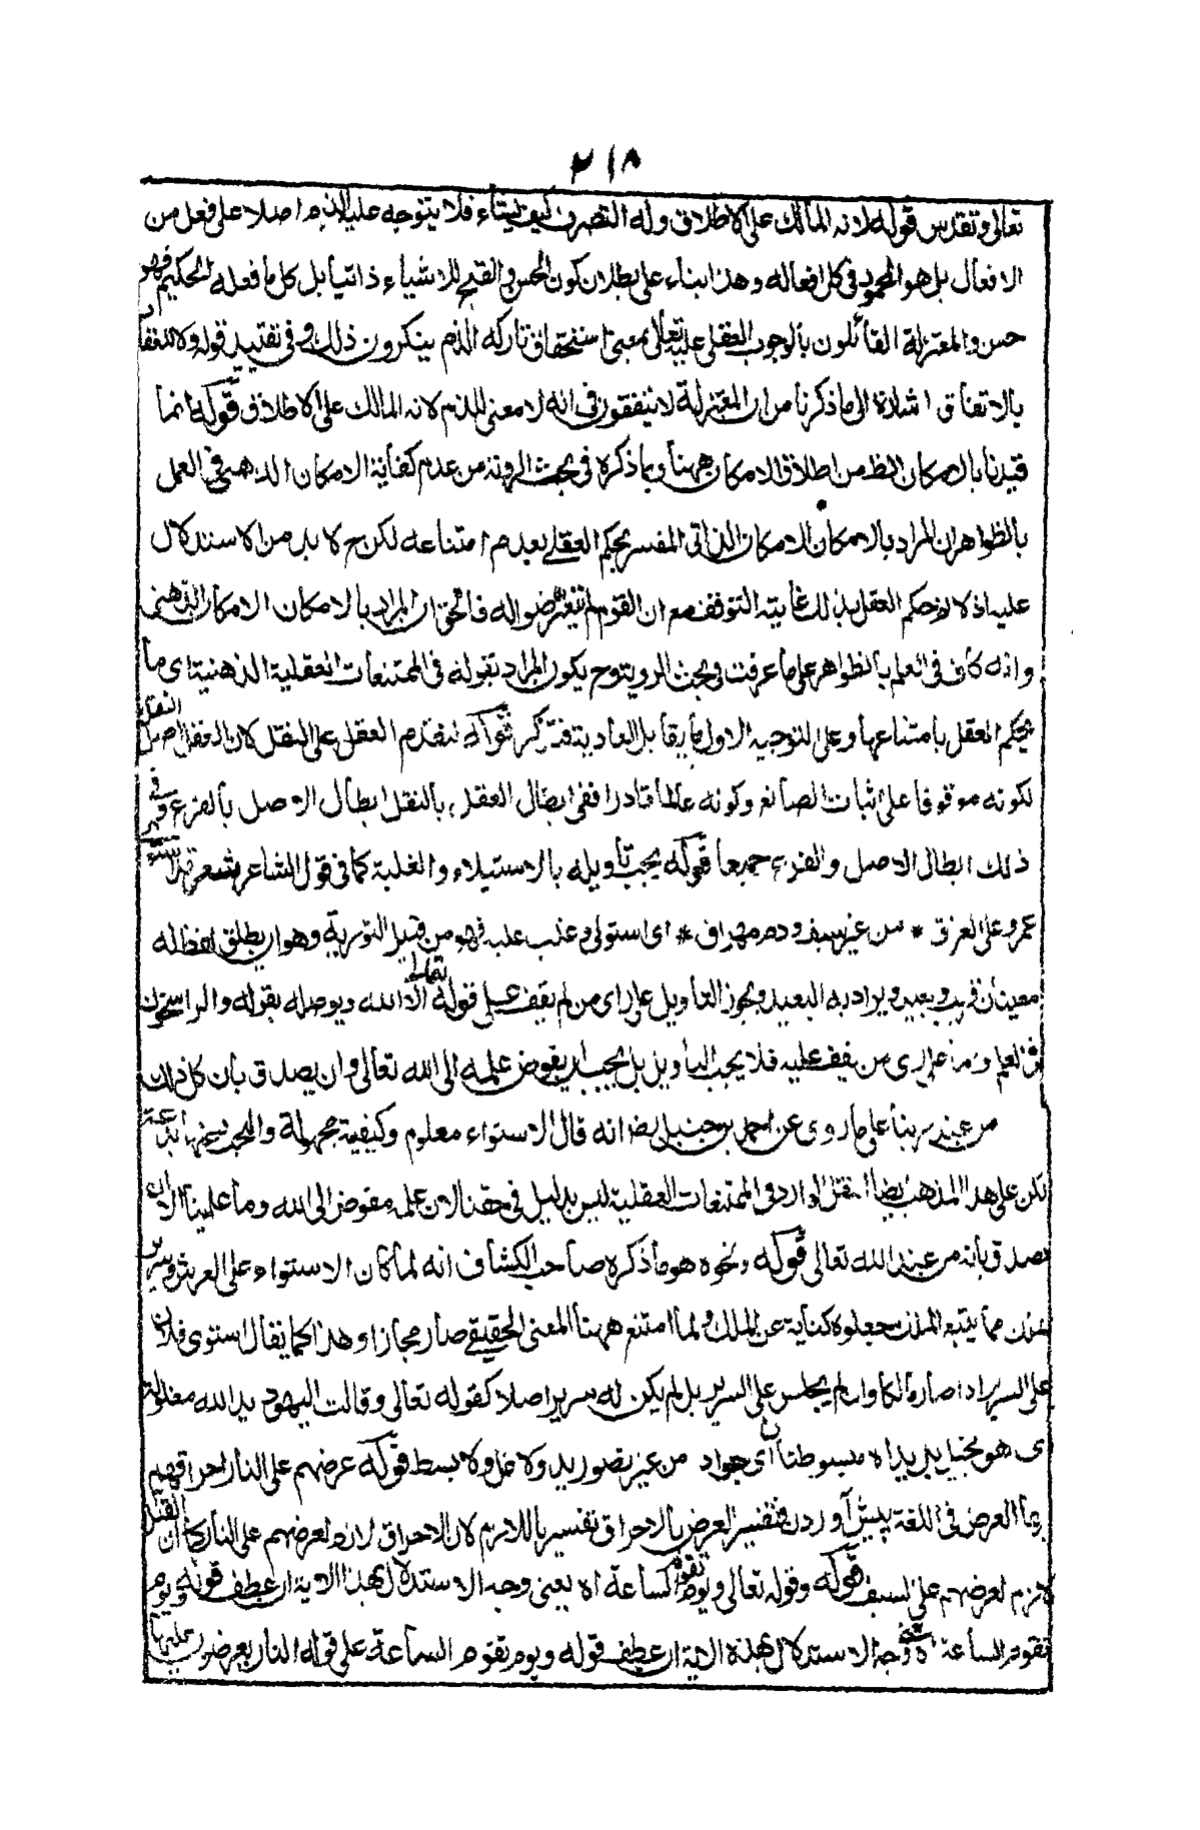 ٢١٨
تعالى وتقدس قوله لانه المالك على الاطلاق وله التصرف كيف يشاء فلا يتوجه عليه الذم اصلا على فعل من
الافعال بل هو المحمود فى كل افعاله وهذا بناء على بطلان كون الحسن والقبح للاشياء ذاتيا بل كل ما فعله الحكيم فهو
حسن والمعتزلة القائلون بالوجوب العقلى عليه تعالى بمعنى استحقاق تاركه الذم ينكرون ذلك وفى تقييد قوله ولا للعقل
بالاتفاق اشارة الى ما ذكرنا من ان المعتزلة لا يتفقون فى انه لا معنى للذم لانه المالك على الاطلاق قوله انما
قيدنا بالامكان الظ من اطلاق الامكان ههنا وبما ذكره فى بحث الروية من عدم كفاية الامكان الذهنى فى العمل
بالظواهر ان المراد بالامكان الامكان الذاتى المفسر بحكم العقل بعدم امتناعه لكن ح لا بد من الاستدلال
عليه اذ لا حكم العقل بذلك غايته التوقف مع ان القوم لم يتعرضوا له فالحق ان المراد بالامكان الامكان الذهنى
وانه كاف فى العلم بالظواهر على ما عرفت فى بحث الروية وح يكون المراد بقوله فى الممتنعات العقلية الذهنية اى ما
يحكم العقل بامتناعها وعلى التوجيه الاول ما يقابل العادية فتذكر قوله لتقدم العقل على النقل كان العقل اصل النقل
لكونه موقوفا على اثبات الصانع وكونه عالما قادرا ففى ابطال العقل بالنقل ابطال الاصل بالفرع وفى
ذلك ابطال الاصل والفرع جميعا قوله يجب تاويله بالاستيلاء والغلبة كما فى قول الشاعر شعر قد استوى
عمرو على العراق * من غير سيف ودم مهراق * اى استولى وغلب عليه فهو من قبيل التورية وهو ان يطلق لفظ له
معنيان قريب وبعيد ويراد به البعيد ويجوز التاويل على راى من لم يقف على قوله تعالى الا الله ويوصله بقوله والراسخون
فى العلم واما على راى من يقف عليه فلا يجب التاويل بل يجب ان يفوض علمه الى الله تعالى وان يصدق بان كل ذلك
من عند ربنا على ما روى عن احمد بن حنبل رض انه قال الاستواء معلوم وكيفية مجهولة والبحث عنها بدعة
لكن على هذا المذهب ايضا النقل الوارد فى الممتنعات العقلية ليس بدليل فى حقنا لان علمه مفوض الى الله وما علينا الا ان
نصدق بانه من عند الله تعالى قوله ونحوه هو ما ذكره صاحب الكشاف انه لما كان الاستواء على العرش وسرير
الملك مما يتبع الملك جعلوه كناية عن الملك ولما امتنع ههنا المعنى الحقيقى صار مجازا وهذا كما يقال استوى فلان
على السرير اذا صار مالكا وان لم يجلس على السرير بل لم يكن له سرير اصلا كقوله تعالى وقالت اليهود يد الله مغلولة
اى هو بخيل بل يداه مبسوطتان اى جواد من غير تصوير يد ولا غل ولا بسط قوله عرضهم على النار احراقهم
ربما العرض فى اللغة پيش آوردن فتفسير العرض بالاحراق تفسير باللازم لان الاحراق لازم لعرضهم على النار كما ان القتل
لازم لعرضهم على السيف قوله وقوله تعالى ويوم تقوم الساعة اه يعنى وجه الاستدلال بهذا الاية ان عطف قوله ويوم
تقوم الساعة اه وجه الاستدلال بهذه الاية ان عطف قوله ويوم تقوم الساعة على قوله النار يعرضون عليها